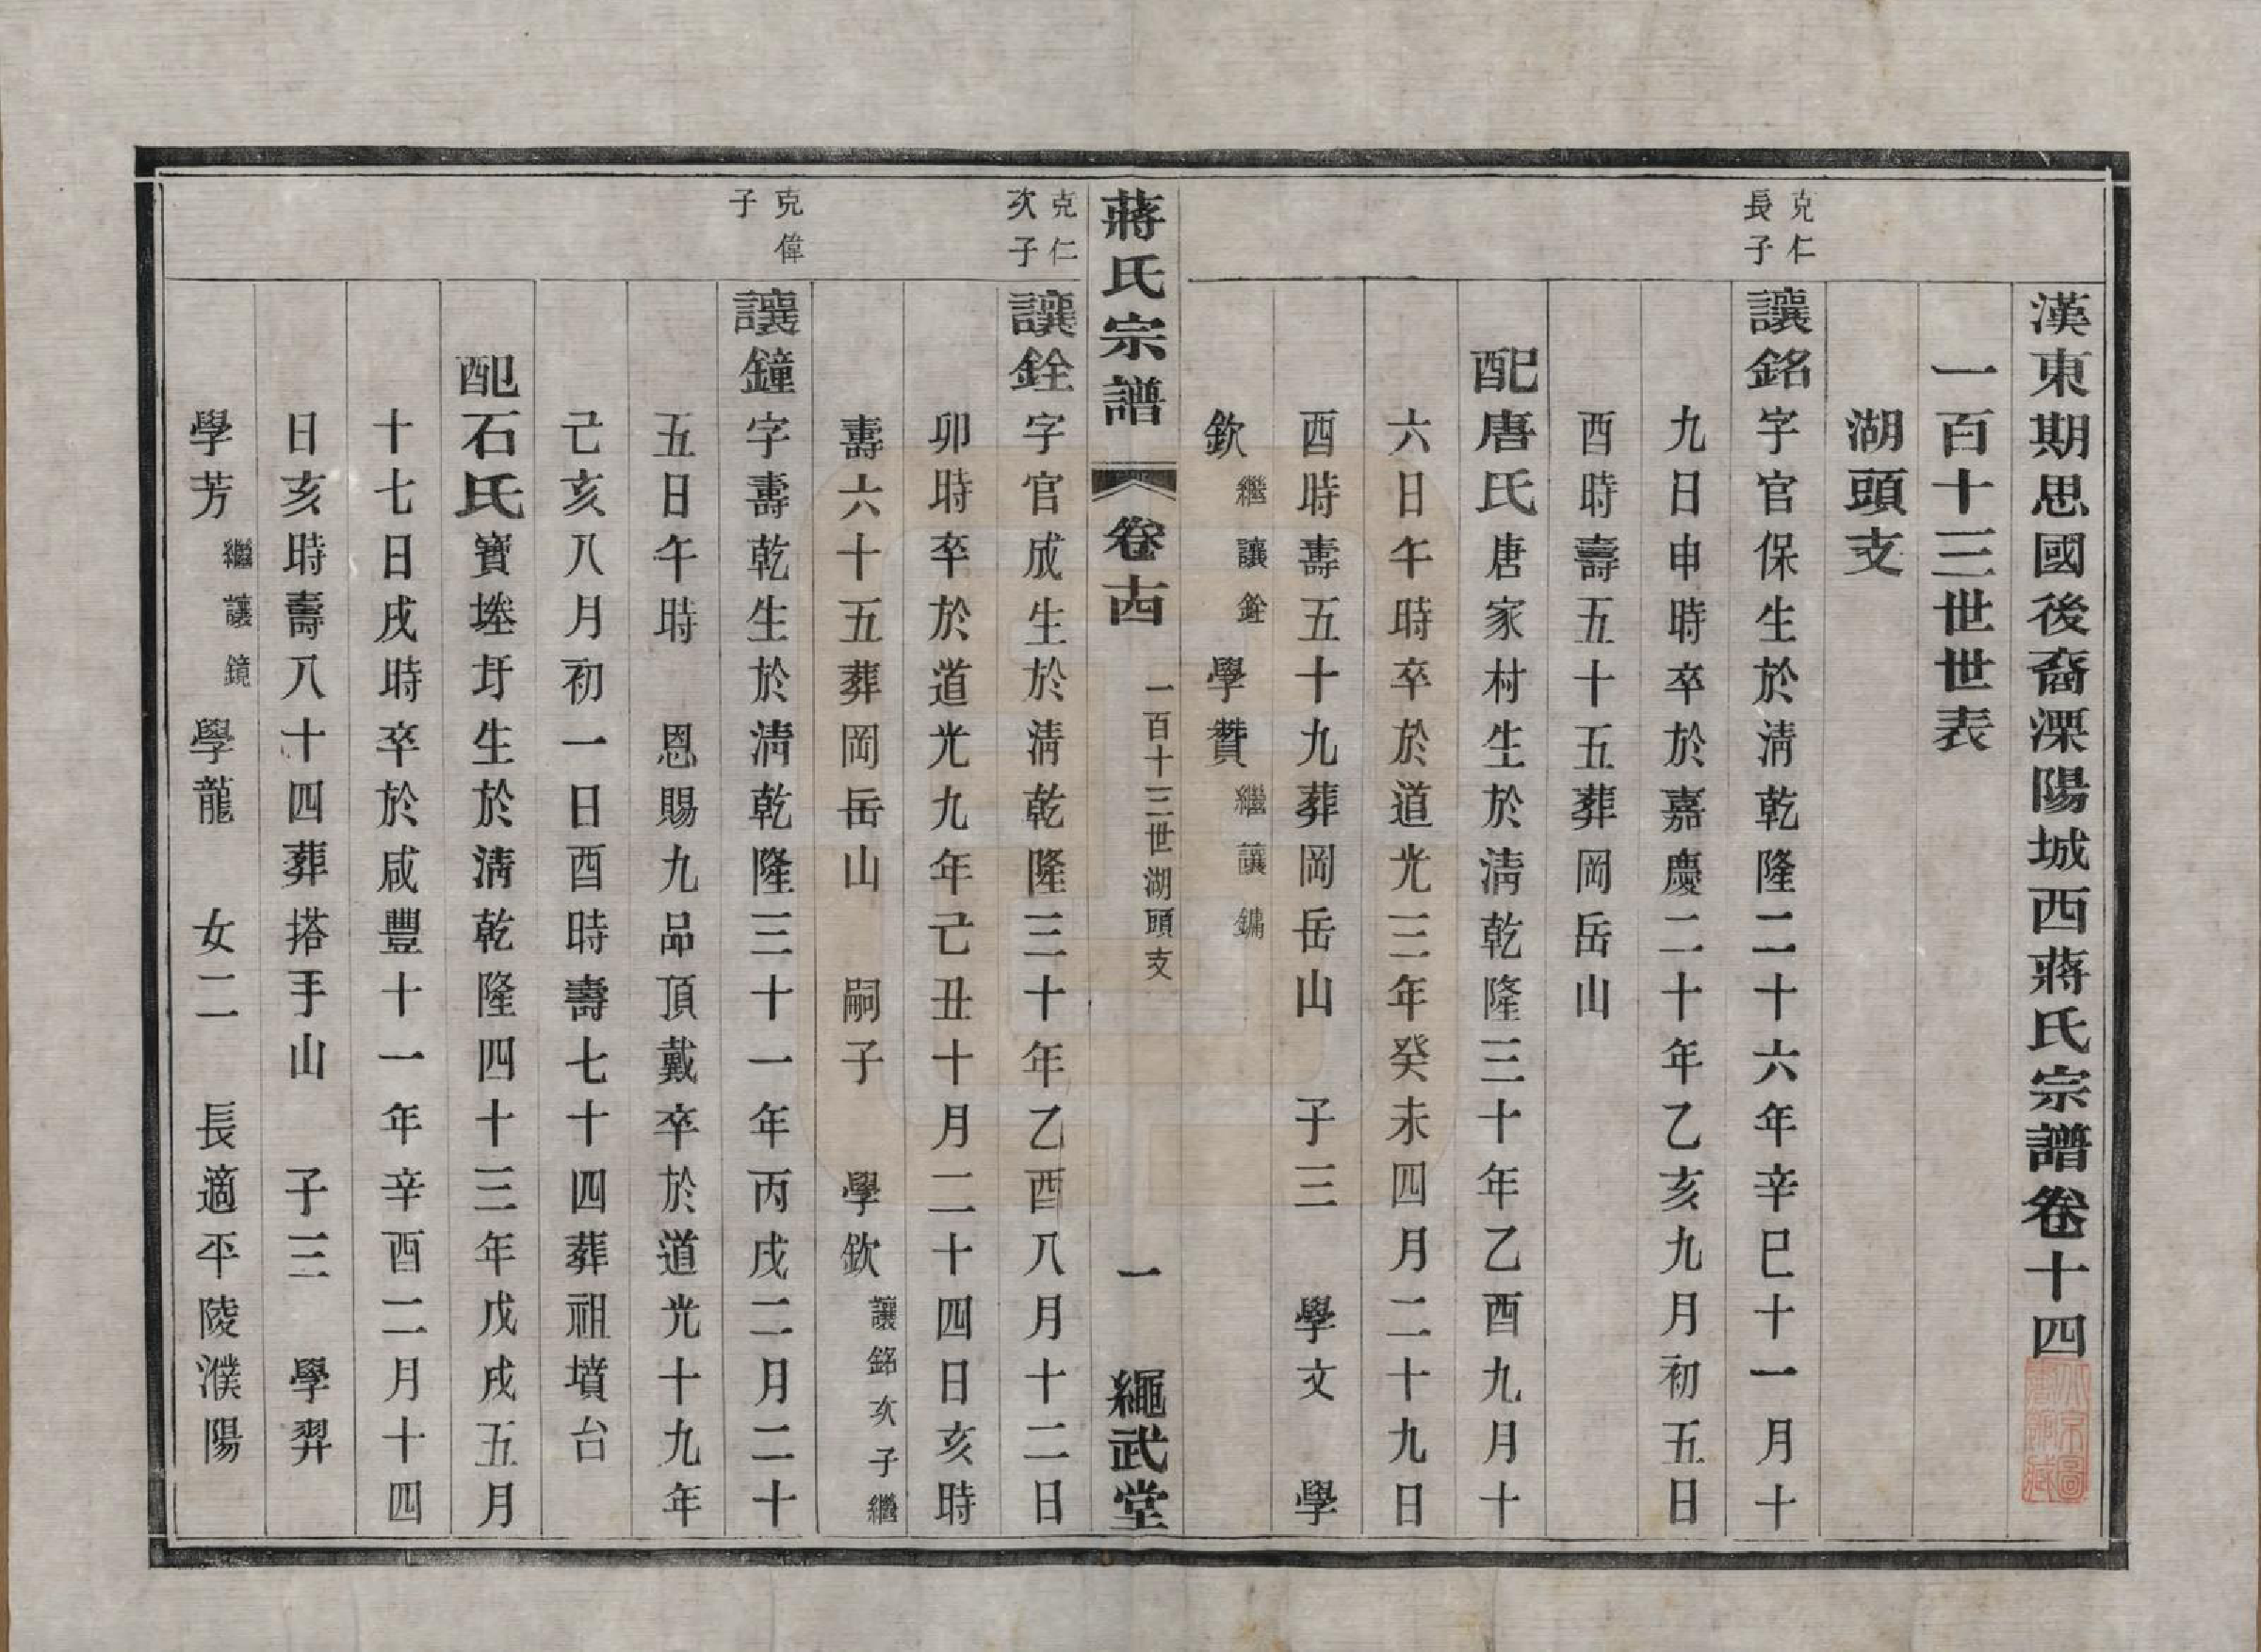 漢東期思國後裔溧陽城西蔣氏宗譜卷十四
一百十三世世表
湖頭支
克仁
長子
讓銘字官保生於清乾隆二十六年辛巳十一月十
九日申時卒於嘉慶二十年乙亥九月初五日
酉時壽五十五葬岡岳山
配唐氏唐家村生於清乾隆三十年乙酉九月十
六日午時卒於道光三年癸未四月二十九日
酉時壽五十九葬岡岳山 子三 學文 學
欽繼讓銓 學贊繼讓鏞
蔣氏宗譜 卷十四 一百十三世湖頭支 一 繩武堂
克仁
次子
讓銓字官成生於清乾隆三十年乙酉八月十二日
卯時卒於道光九年己丑十月二十四日亥時
壽六十五葬岡岳山 嗣子 學欽讓銘次子繼
克偉
子
讓鐘字壽乾生於清乾隆三十一年丙戌二月二十
五日午時 恩賜九品頂戴卒於道光十九年
己亥八月初一日酉時壽七十四葬祖墳台
配石氏寶埝圩生於清乾隆四十三年戊戌五月
十七日戌時卒於咸豐十一年辛酉二月十四
日亥時壽八十四葬搭手山 子三 學羿
學芳繼讓鏡 學龍 女二 長適平陵濮陽